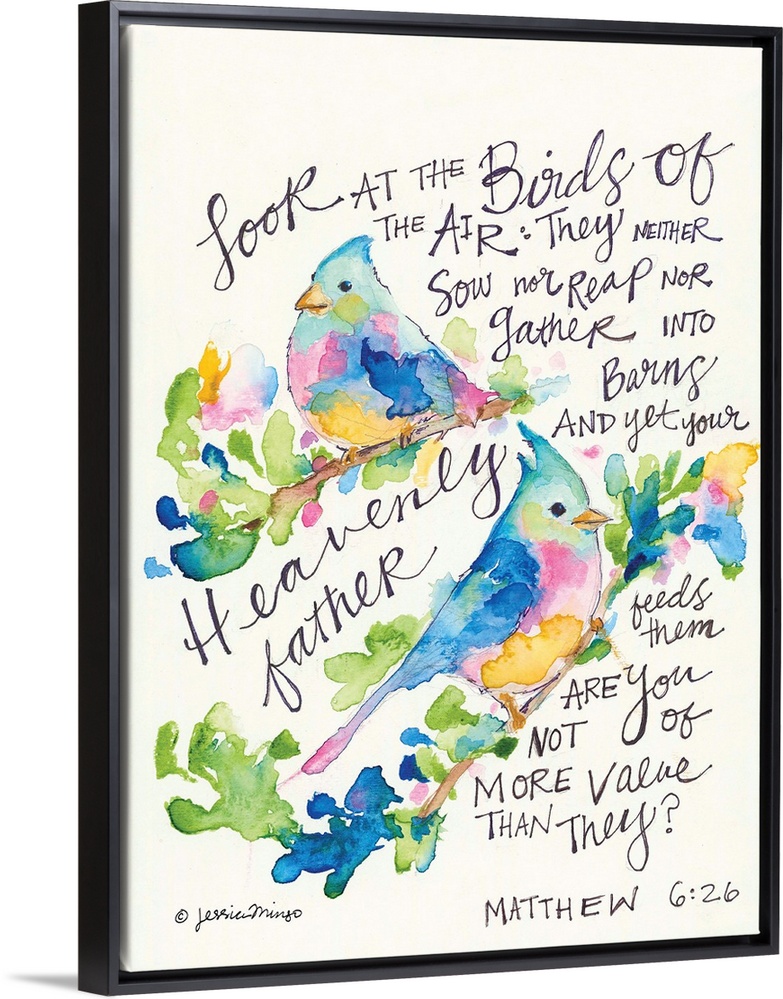 Look AT THE Birds of
THE AIR: They NEITHER
Sow nor Reap NOR
gather INTO
Barns
AND yet your
Heavenly
father
feeds
them
ARE you
NOT of
MORE Value
THAN They?
MATTHEW 6:26
© Jessica Mingo